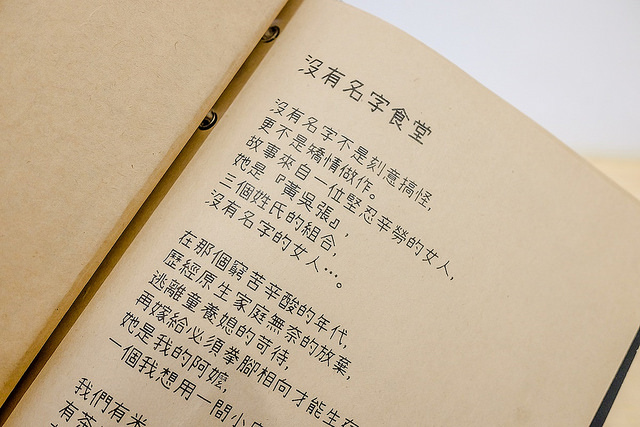 沒有名字食堂
沒有名字不是刻意搞怪,
更不是矯情做作。
故事來自一位堅忍辛勞的女人,
她是『黃吳張』,
三個姓氏的組合,
沒有名字的女人…。
在那個窮苦辛酸的年代,
歷經原生家庭無奈的放棄,
逃離童養媳的苛待,
再嫁給必須拳腳相向才能生存
她是我的阿嬤,
一個我想用一間小
我們有米
有茶